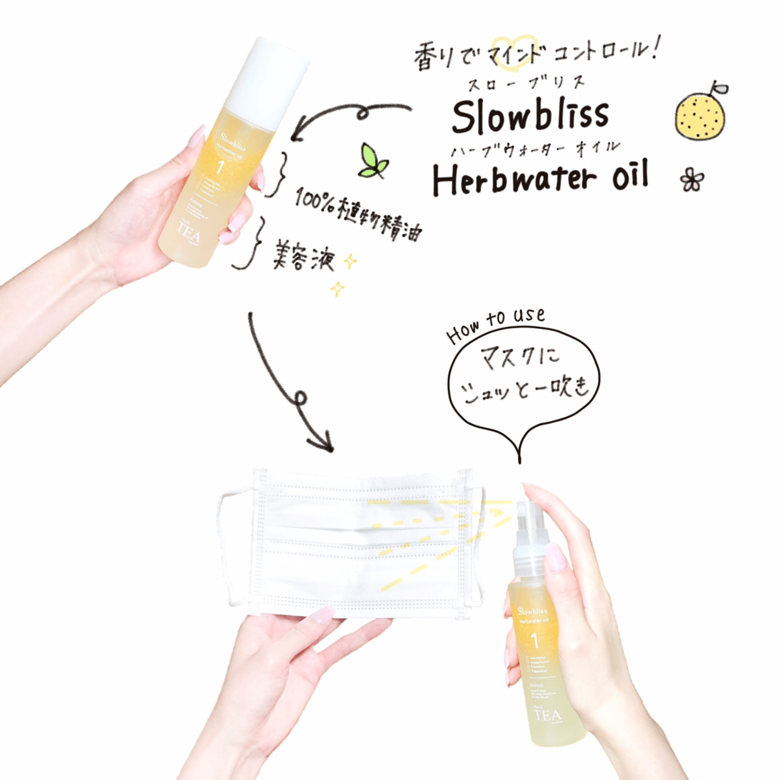 香りでマインドコントロール!
スローブリス
Slowbliss
ハーブウォーターオイル
Herbwater oil
Slowbliss
Herbwater oil
1
TEA
100%植物精油
美容液
How to use
マスクに
シュッと一吹き
Slowbliss
Herbwater oil
1
TEA